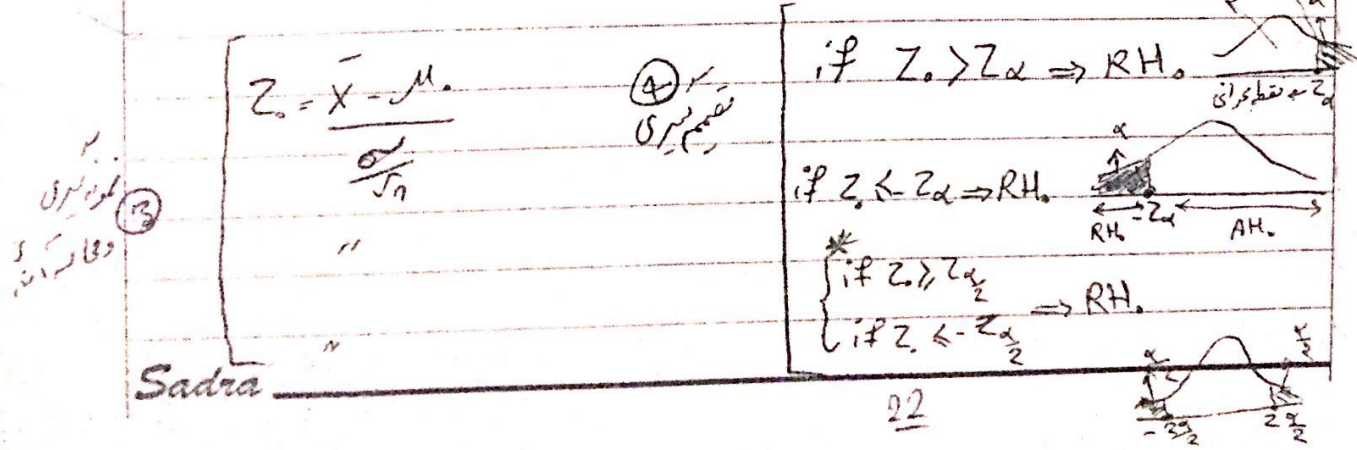 ③
نمونه‌گیری
Z₀ = (x̄ - μ₀) / (σ/√n)
"
"
④
تصمیم‌گیری
if Z₀ > Zα ⇒ RH₀
α
Zα → نقطه بحرانی
if Z₀ ≤ -Zα ⇒ RH₀
α
RH₀ -Zα AH₀
*
if Z₀ ≥ Zα/2
if Z₀ ≤ -Zα/2 ⇒ RH₀
α/2 α/2
-Zα/2 Zα/2
Sadra
22